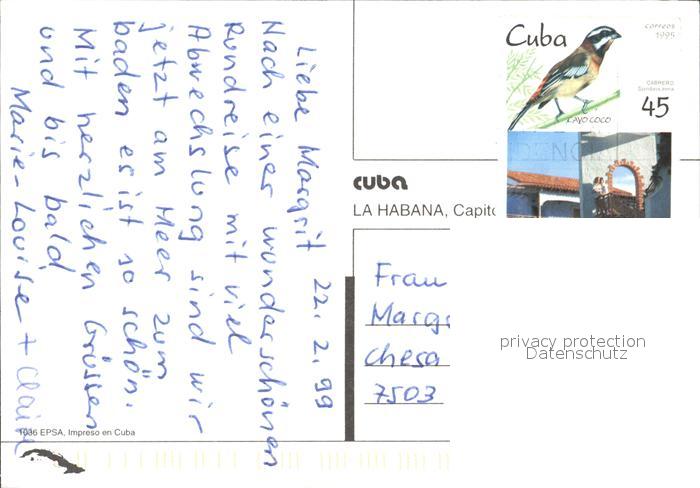 Liebe Margrit 22.2.99
Nach einer wunderschönen
Rundreise mit viel
Abwechslung sind wir
jetzt am Meer zum
baden es ist so schön.
Mit herzlichen Grüssen
und bis bald
Marie-Louise + Claire
1036 EPSA, Impreso en Cuba
Cuba
correos
1995
CABRERO
45
CAYO COCO
cuba
LA HABANA, Capito
Frau
Margr
chesa
7503
privacy protection
Datenschutz